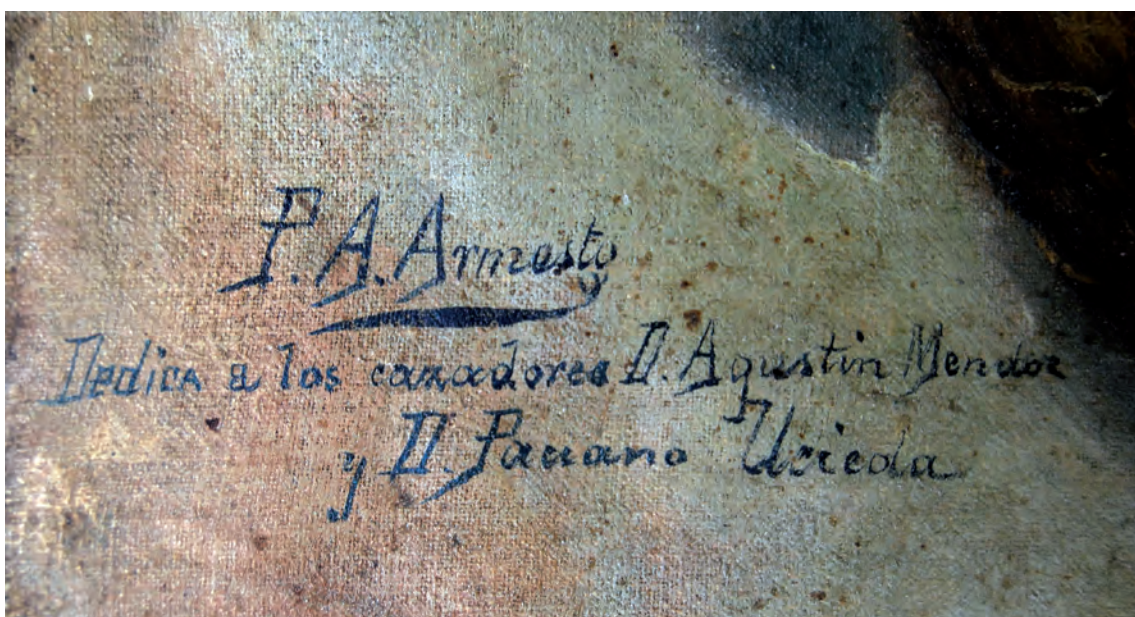 P. A. Armesto
Dedica a los cazadores D. Agustin Mendez
y D. Pauano Ucieda